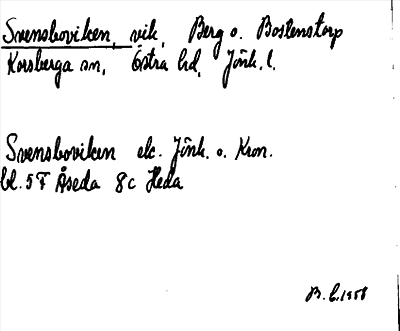 Svensboviken, vik, Berg o. Bostenstorp
Korsberga sn, Östra hd, Jönk. l.
Svensboviken ek. Jönk. o. Kron.
bl. 5 F Åseda 8c Heda
B. L. 1958